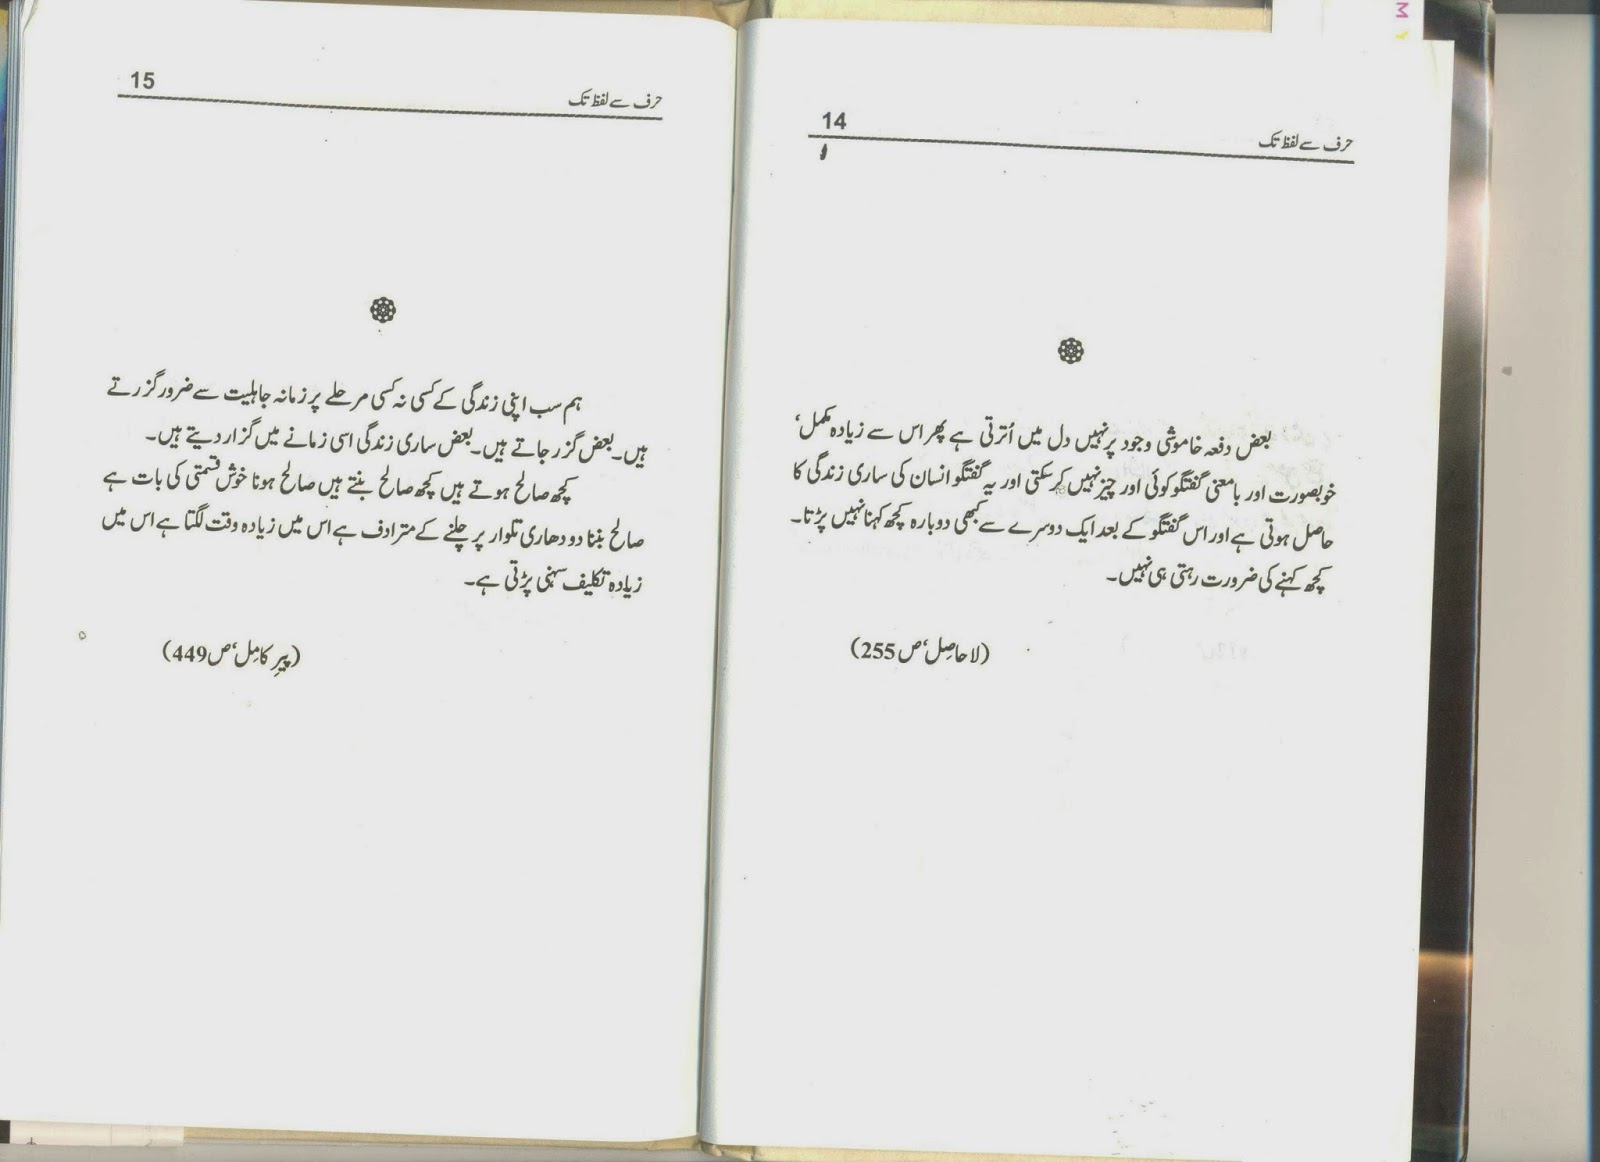 حرف سے لفظ تک
14
بعض دفعہ خاموشی وجود پر نہیں دل میں اُترتی ہے پھر اس سے زیادہ مکمل،
خوبصورت اور بامعنی گفتگو کوئی اور چیز نہیں کر سکتی اور یہ گفتگو انسان کی ساری زندگی کا
حاصل ہوتی ہے اور اس گفتگو کے بعد ایک دوسرے سے کبھی دوبارہ کچھ کہنا نہیں پڑتا۔
کچھ کہنے کی ضرورت رہتی ہی نہیں۔
(لاحاصِل، ص 255)
حرف سے لفظ تک
15
ہم سب اپنی زندگی کے کسی نہ کسی مرحلے پر زمانہ جاہلیت سے ضرور گزرتے
ہیں۔ بعض گزر جاتے ہیں۔ بعض ساری زندگی اسی زمانے میں گزار دیتے ہیں۔
کچھ صالح ہوتے ہیں کچھ صالح بنتے ہیں صالح ہونا خوش قسمتی کی بات ہے
صالح بننا دو دھاری تلوار پر چلنے کے مترادف ہے اس میں زیادہ وقت لگتا ہے اس میں
زیادہ تکلیف سہنی پڑتی ہے۔
(پیرِ کامِل، ص 449)
M Y